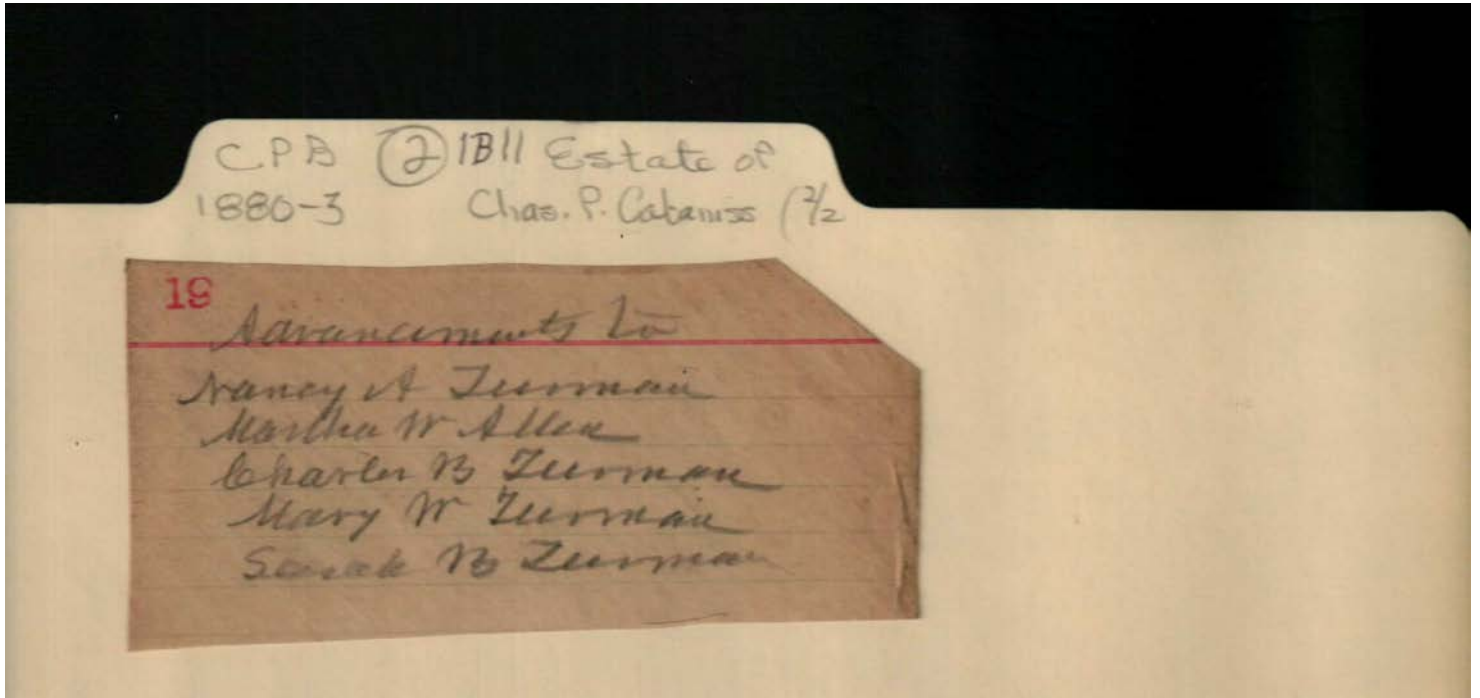 CPB ② 1B11 Estate of
1880-3 Chas. P. Cabaniss (2/2
19
Advancements to
Nancy A Turman
Martha W Allen
Charles B Turman
Mary W Turman
Sarah B Turman